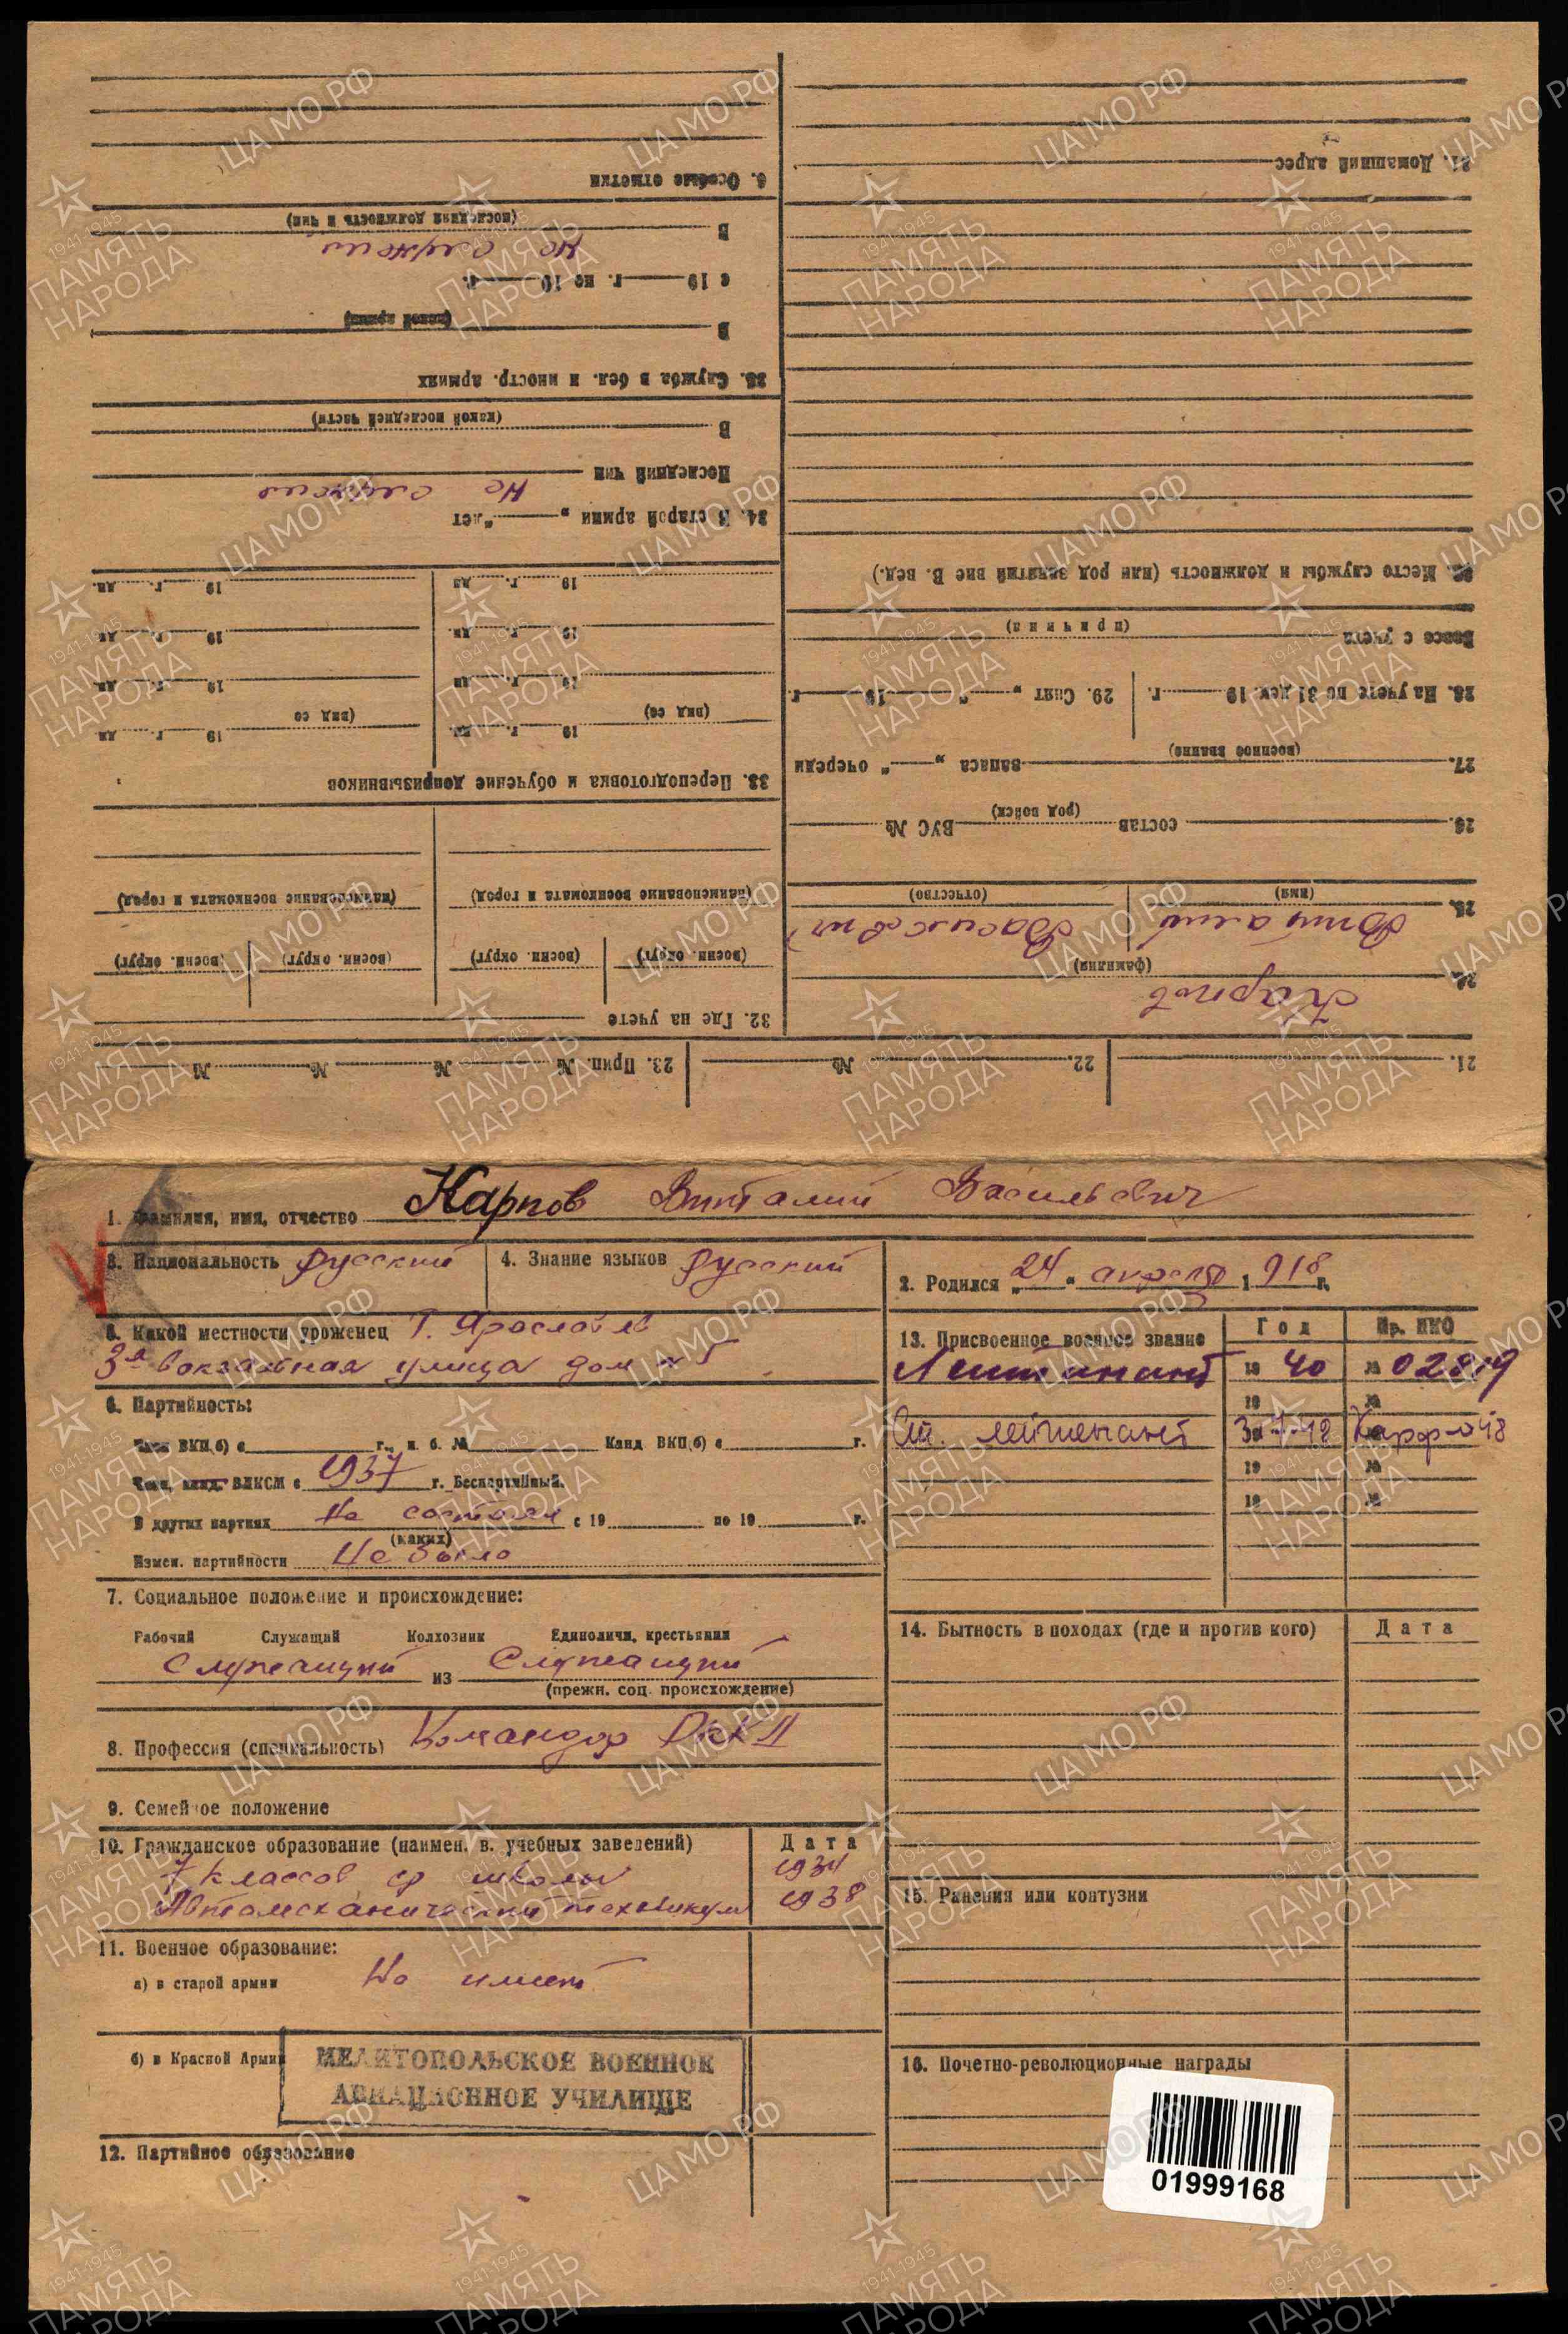 1. Фамилия, имя, отчество Карпов Виталий Васильевич
3. Национальность русский
4. Знание языков русский
2. Родился „24“ апреля 1918 г.
5. Какой местности уроженец г. Ярославль
3я вокзальная улица дом № 5
6. Партийность:
Член ВКП(б) с г., п. б. № Канд ВКП(б) с г.
Член, канд. ВЛКСМ с 1937 г. Беспартийный.
В других партиях Не состоял с 19 по 19 г.
(каких)
Измен. партийности Не было
7. Социальное положение и происхождение:
Рабочий Служащий Колхозник Единоличн. крестьянин
Служащий из Служащий
(прежн. соц. происхождение)
8. Профессия (специальность) Командир РККА
9. Семейное положение
10. Гражданское образование (наимен. в. учебных заведений) Дата
7 классов ср школы 1934
Автомеханический техникум 1938
11. Военное образование:
а) в старой армии Не имеет
б) в Красной Армии МЕЛИТОПОЛЬСКОЕ ВОЕННОЕ
АВИАЦИОННОЕ УЧИЛИЩЕ
12. Партийное образование
13. Присвоенное военное звание Год Пр. НКО
Лейтенант 19 40 № 02819
19 №
Ст. лейтенант
19 №
19 №
14. Бытность в походах (где и против кого) Дата
15. Ранения или контузии
16. Почетно-революционные награды
01999168
21. 22. № 23. Прип. № № № №
24. Карпов
(фамилия)
25. Виталий Васильевич
(имя) (отчество)
26. состав (род войск) ВУС №
27. запаса „ “ очереди
(военное звание)
28. На учете по 31 дек. 19 г. 29. Снят „ “ 19 г.
Вовсе с учета
(причина)
30. Место службы и должность (или род занятий вне В. вед.)
31. Домашний адрес
32. Где на учете
(воен. округ) (воен. округ) (воен. округ) (воен. округ)
(наименование военкомата и город) (наименование военкомата и город)
33. Переподготовка и обучение допризывников
19 г. дн. 19 г. дн
(вид со) (вид со)
19 г. дн 19 г. дн
19 г. дн. 19 г. дн
19 г. дн 19 г. дн.
34. В старой армии „ “ лет
Не служил
Последний чин
В
(какой последней части)
35. Служба в бел. и иностр. армиях
В
(какой армии)
с 19 г. по 19 г.
Не служил
В
(последняя должность и чин)
6. Особые отметки
ЦАМО.РФ
1941-1945
ПАМЯТЬ
НАРОДА